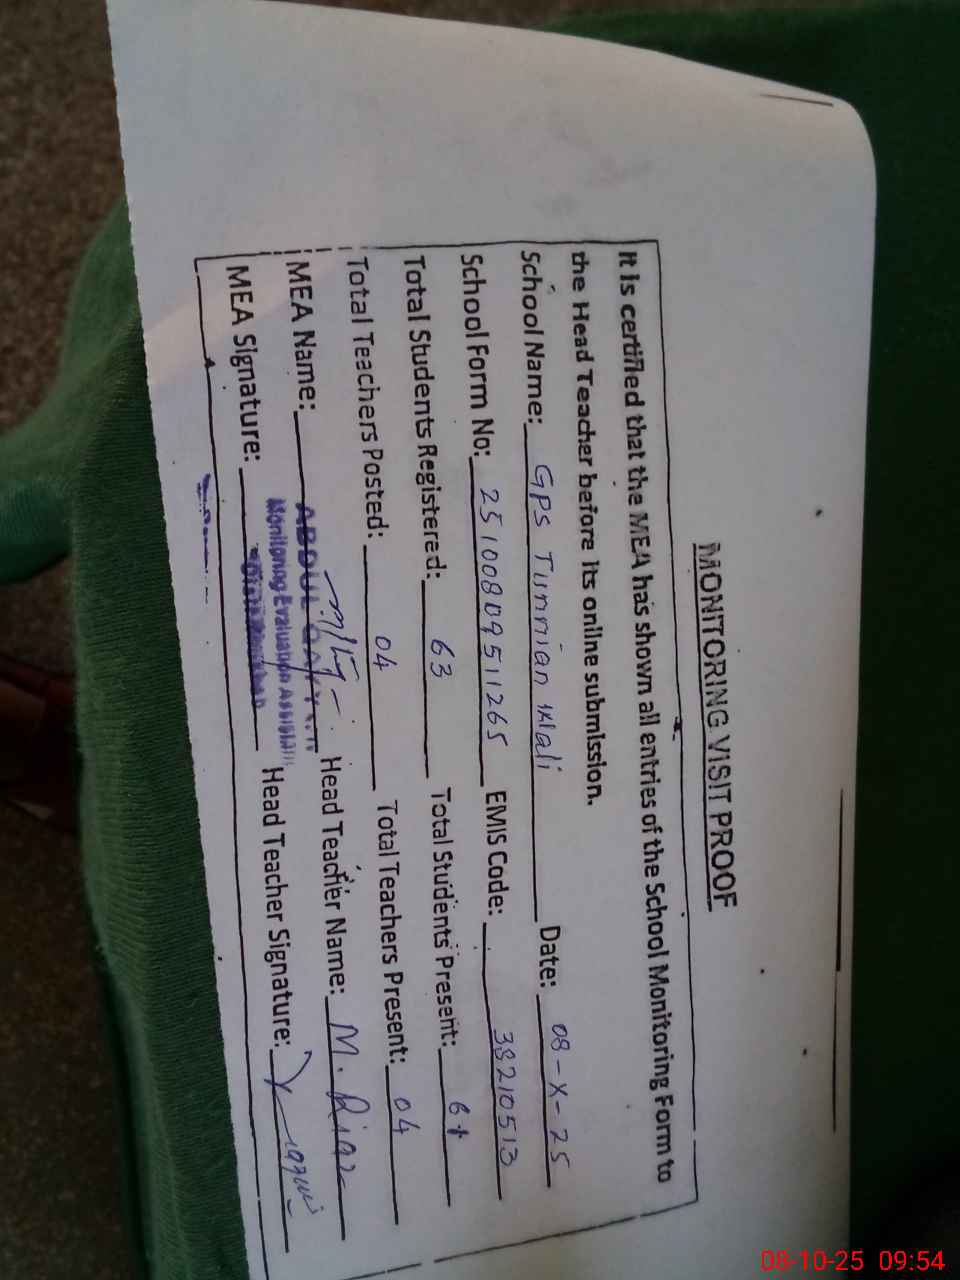 MONITORING VISIT PROOF
It is certified that the MEA has shown all entries of the School Monitoring Form to
the Head Teacher before its online submission.
School Name: GPS Tunnian Wali Date: 08-X-25
School Form No: 25100809511265 EMIS Code: 38210513
Total Students Registered: 63 Total Students Present: 61
Total Teachers Posted: 04 Total Teachers Present: 04
MEA Name: ABDUL QAYYUM Head Teacher Name: M. Riaz
Monitoring Evaluation Assistant
MEA Signature: Head Teacher Signature:
08-10-25 09:54